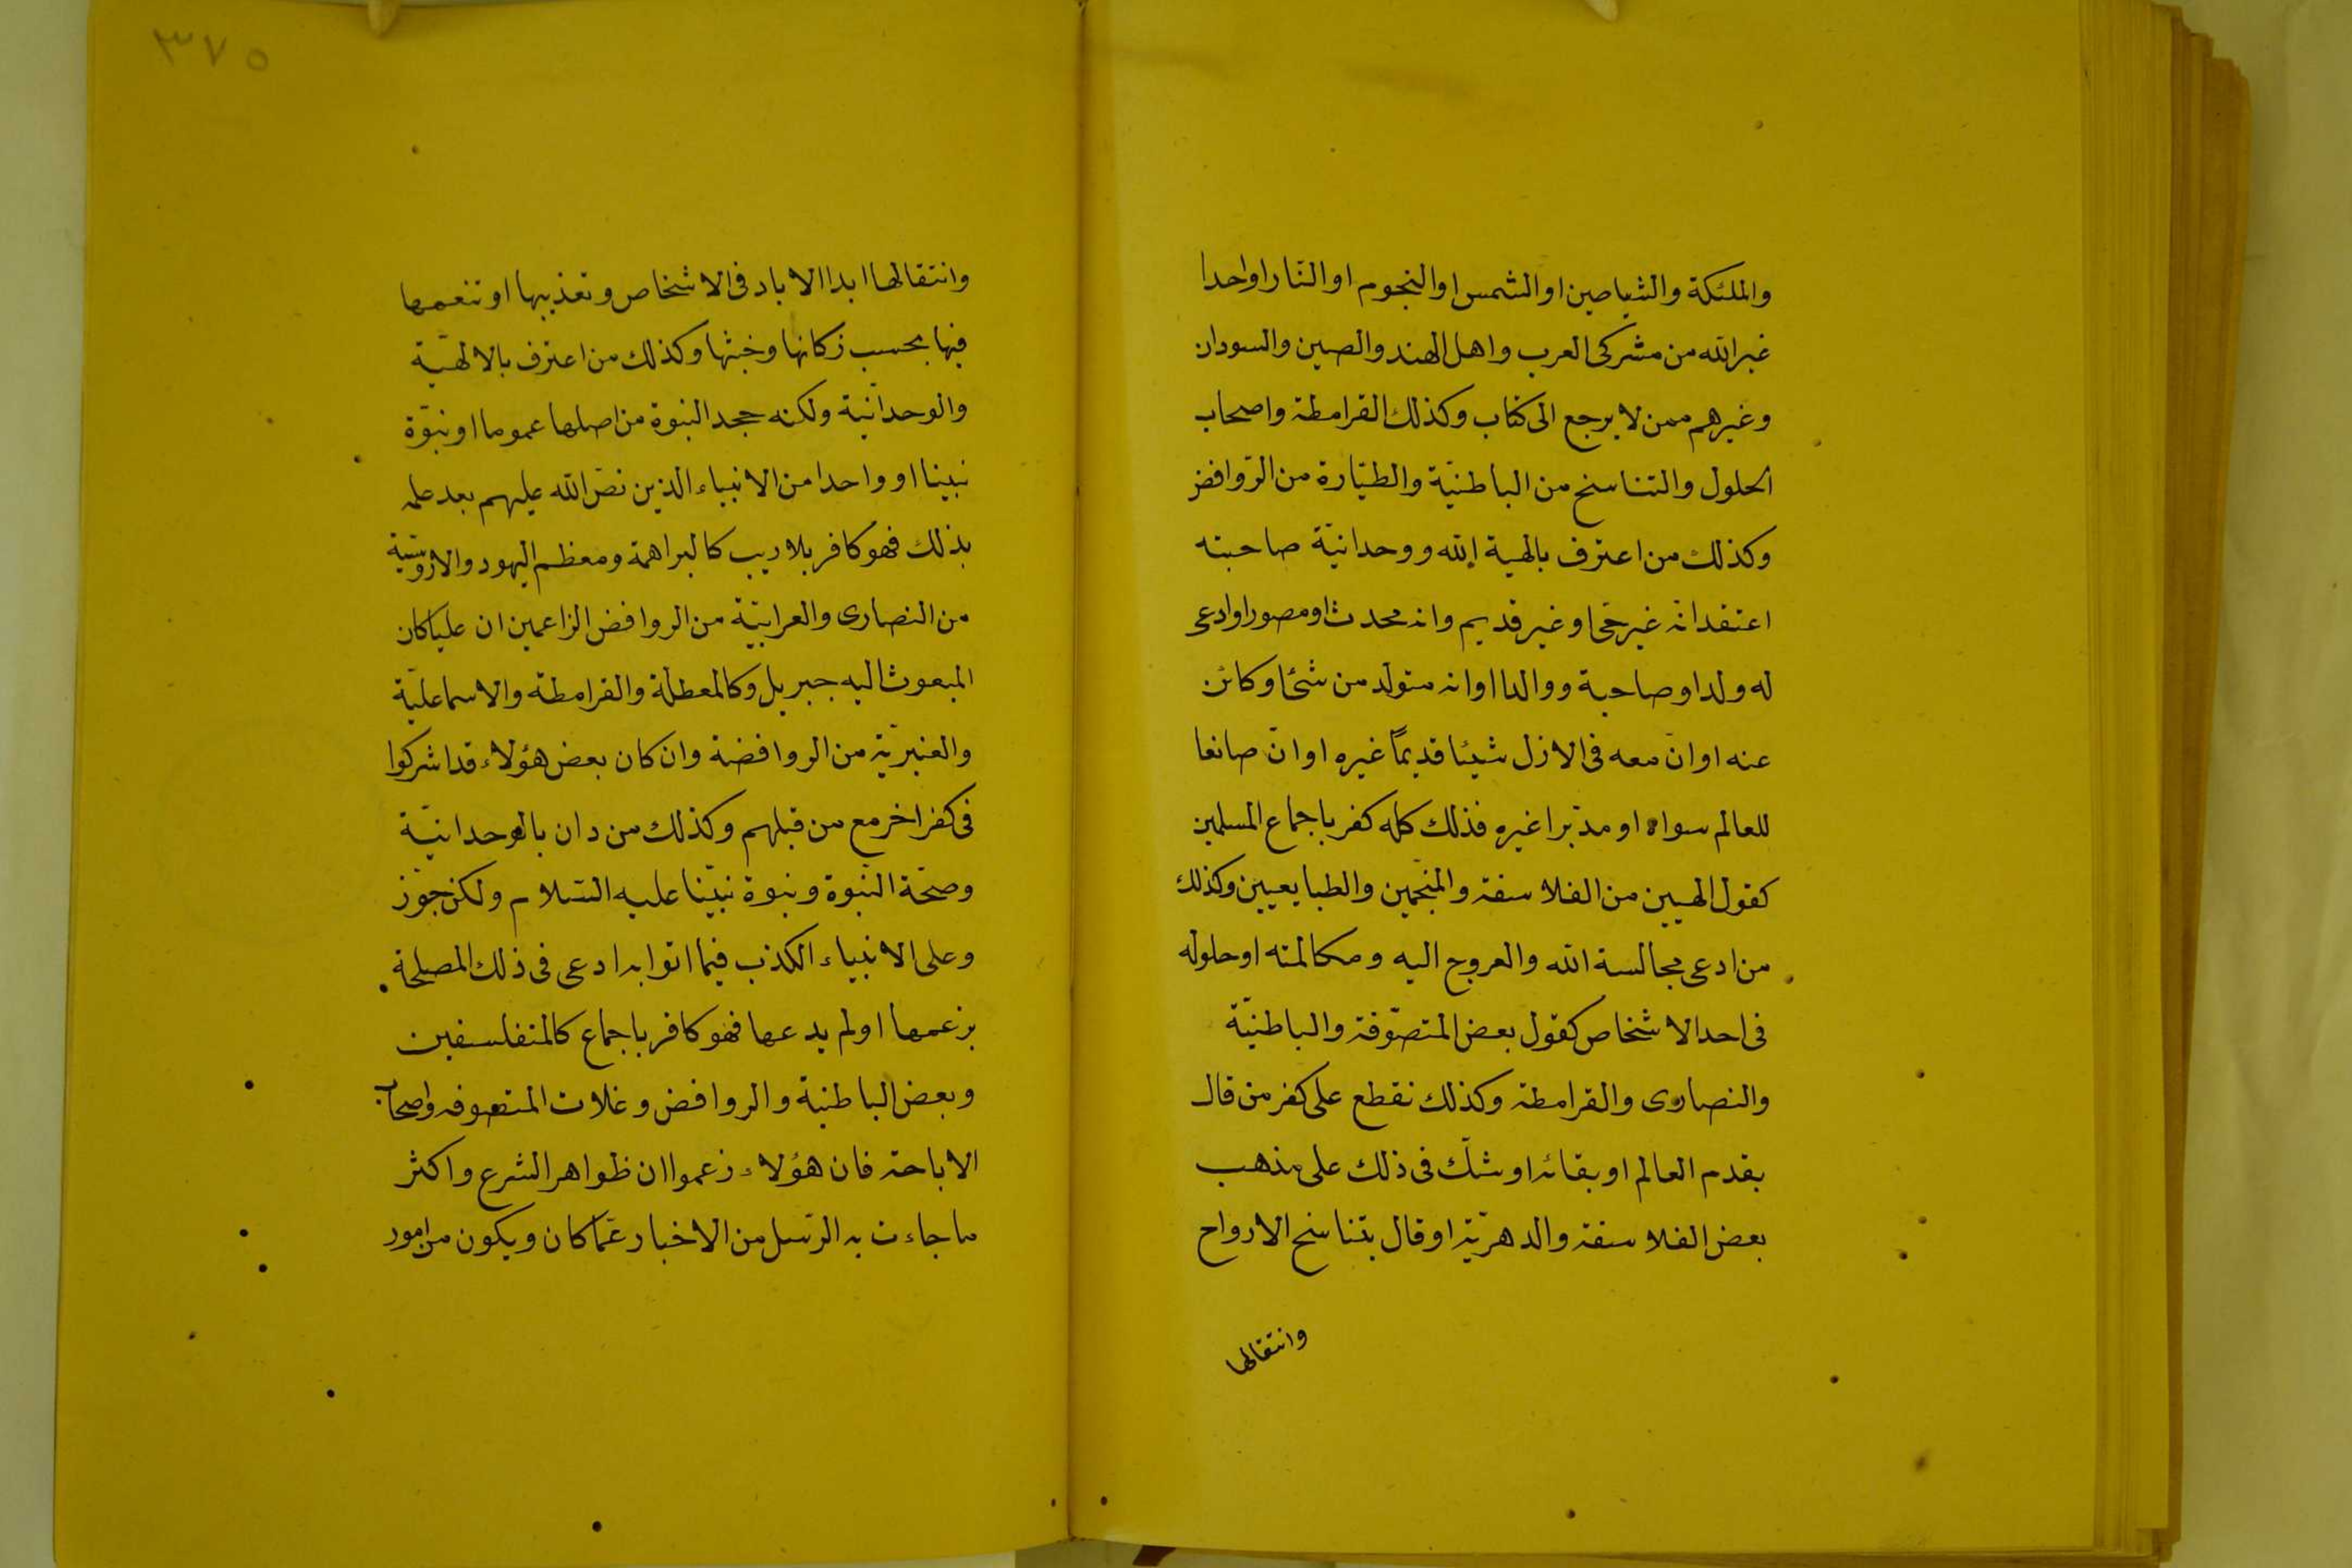 والملئكة والشياصين او الشمس او النجوم او النار او احدا
غير الله من مشركى العرب واهل الهند والصين والسودان
وغيرهم ممن لا يرجع الى كتاب وكذلك القرامطة واصحاب
الحلول والتناسخ من الباطنيّة والطيّارة من الرّوافض
وكذلك من اعترف بالهية الله ووحدانيّة صاحبته
اعتقد انّه غير حىّ او غير قديم وانه محدث او مصور او ادعى
له ولدا وصاحبة ووالدا او انه متولّد من شئ او كائن
عنه او انّ معه فى الازل شيئا قديمًا غيره او انّ صانعا
للعالم سواه او مدبّرا غيره فذلك كله كفر باجماع المسلمين
كقول الهيين من الفلاسفة والمنجّمين والطبايعيين وكذلك
من ادعى مجالسة الله والعروج اليه ومكالمته او حلوله
فى احد الاشخاص كقول بعض المتصّوفة والباطنيّة
والنصارى والقرامطة وكذلك نقطع على كفر من قال
بقدم العالم او بقائه او شكّ فى ذلك على مذهب
بعض الفلاسفة والدهريّة او قال بتناسخ الارواح
وانتقالها
٣٧٥
وانتقالها ابد الاباد فى الاشخاص وتعذيبها او تنعمها
فيها بحسب زكانها وخبثها وكذلك من اعترف بالالهيّة
والوحدانّية ولكنه جحد النبوة من اصلها عموما او نبوّة
نبينا او واحدا من الانبياء الذين نصّ الله عليهم بعد علمه
بذلك فهو كافر بلا ريب كالبراهمة ومعظم اليهود والاروسّية
من النصارى والعرابيّة من الروافض الزاعمين ان عليا كان
المبعوث اليه جبريل وكالمعطلّة والقرامطة والاسماعليّة
والعنبريّة من الروافضة وان كان بعض هؤلاء قد اشركوا
فى كفر اخر مع من قبلهم وكذلك من دان بالوحدانيّة
وصحّة النبّوة ونبوة نبيّنا عليه السّلام ولكن جوّز
وعلى الانبياء الكذب فيما اتوا به ادعى فى ذلك المصلحة
بزعمها او لم يدعها فهو كافر باجماع كالمتفلسفين
وبعض الباطنية والروافض وغلات المتصوفه واصحاب
الاباحة فان هؤلاء زعموا ان ظواهر الشرع واكثر
ما جاءت به الرّسل من الاخبار عمّا كان ويكون من امور